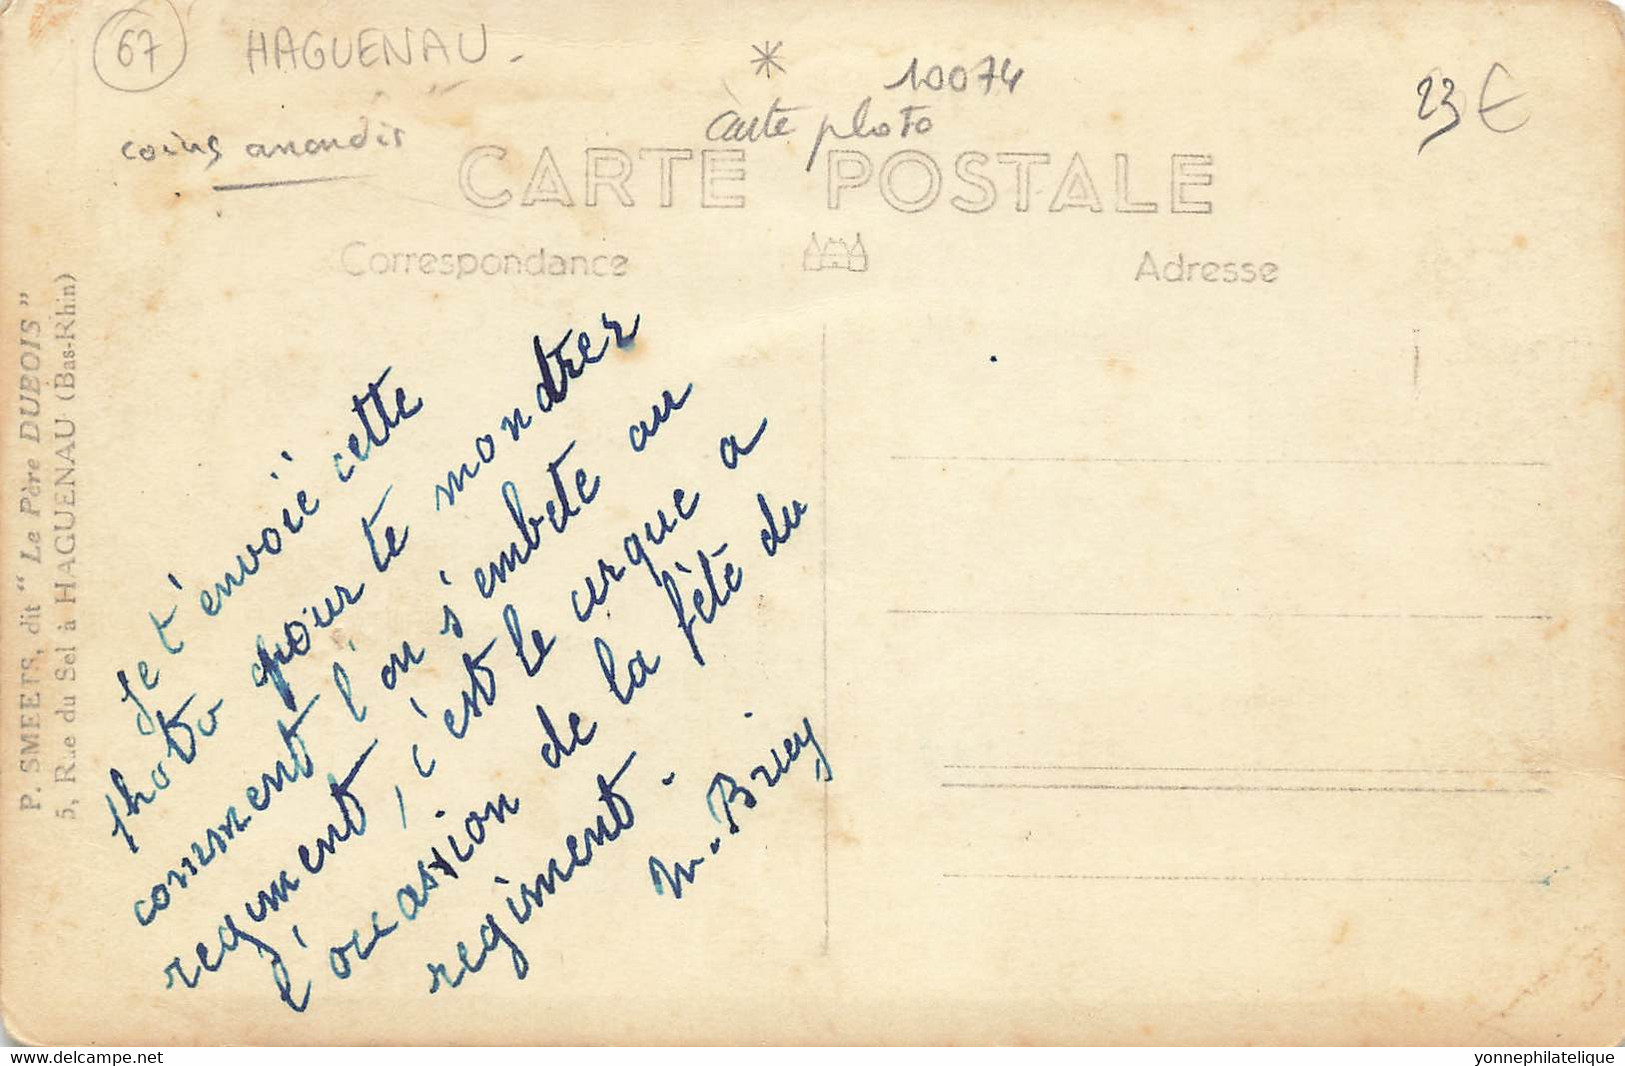 67 HAGUENAU -
* 10074
23 €
carte photo
coins arrondis
CARTE POSTALE
Correspondance
Adresse
P. SMEETS, dit "Le Père DUBOIS"
5, Rue du Sel à HAGUENAU (Bas-Rhin)
Je t'envoie cette
photo pour te mondrer
comment l'on s'embete au
regiment, c'est le cirque a
l'occassion de la fète du
regiment.
m. Briey
www.delcampe.net
yonnephilatelique